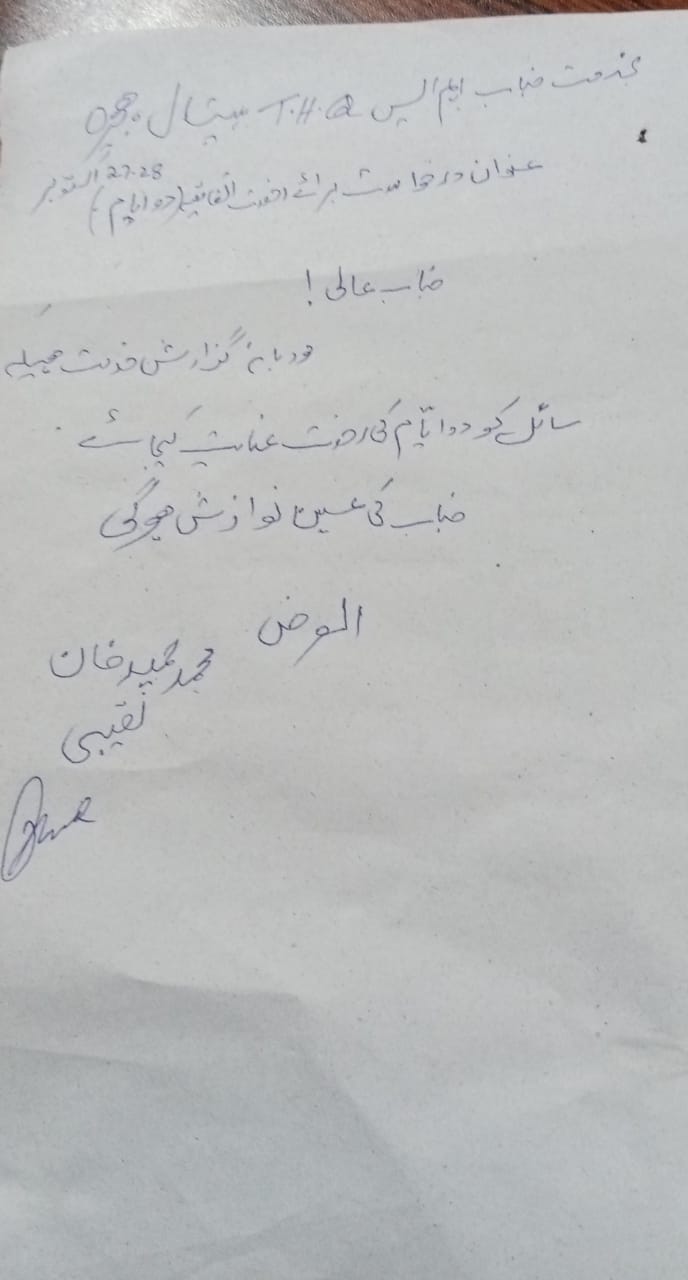 بخدمت جناب ایم ایس T.H.Q ہسپتال
عنوان درخواست برائے رخصت اتفاقیہ (دو ایام) 27-28 اکتوبر
جناب عالی!
مودبانہ گزارش خدمت ہیکہ
سائل کو دو ایام کی رخصت عنایت کیجائے
جناب کی عین نوازش ہوگی
العارض
محمد حمید خان
نقیبی